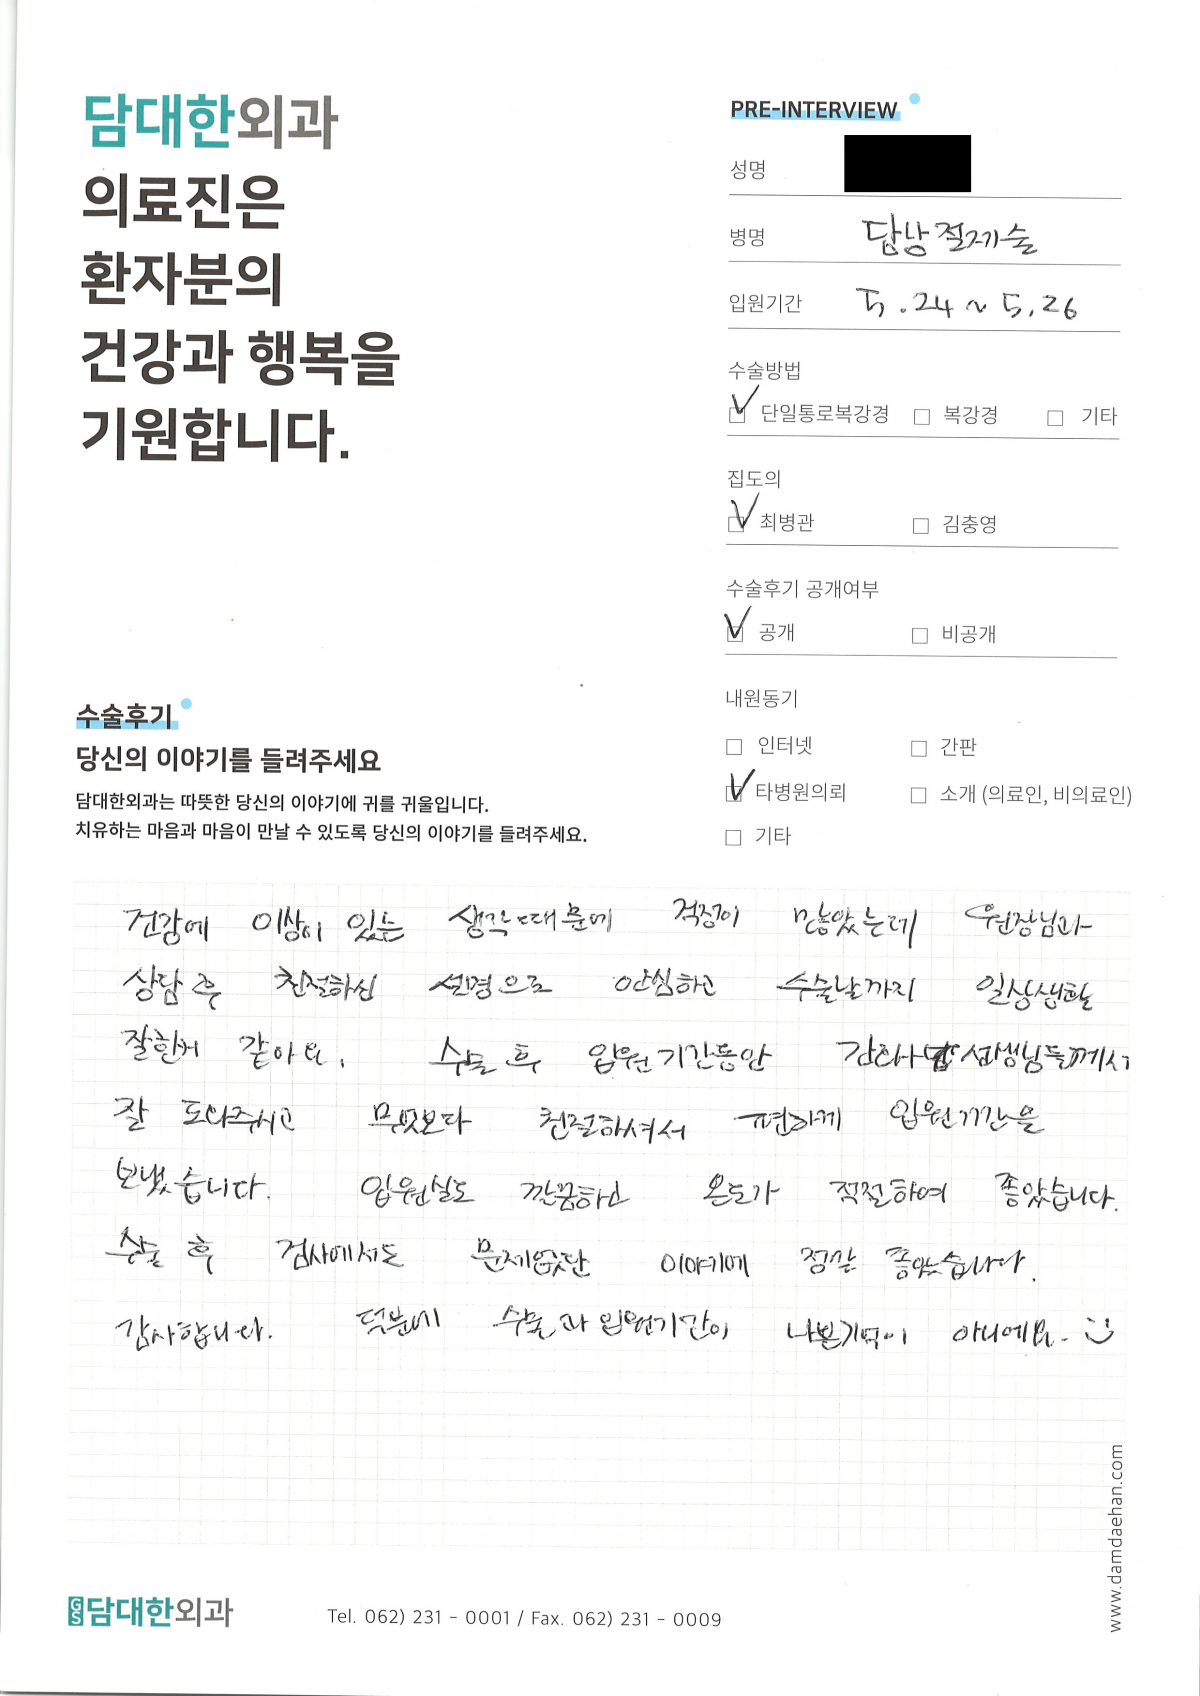 담대한외과
의료진은
환자분의
건강과 행복을
기원합니다.
PRE-INTERVIEW
성명
병명 담낭절제술
입원기간 5.24 ~ 5.26
수술방법
단일통로복강경 복강경 기타
집도의
최병관 김충영
수술후기 공개여부
공개 비공개
내원동기
인터넷 간판
타병원의뢰 소개 (의료인, 비의료인)
기타
수술후기
당신의 이야기를 들려주세요
담대한외과는 따뜻한 당신의 이야기에 귀를 귀울입니다.
치유하는 마음과 마음이 만날 수 있도록 당신의 이야기를 들려주세요.
건강에 이상이 있는 생각때문에 걱정이 많았는데 원장님과
상담 후 친절하신 설명으로 안심하고 수술날까지 일상생활
잘한거 같아요. 수술 후 입원기간동안 간호사 선생님들께서
잘 도와주시고 무엇보다 친절하셔서 편하게 입원기간을
보냈습니다. 입원실도 깔끔하고 온도가 적절하여 좋았습니다.
수술 후 검사에서도 문제없단 이야기에 정말 좋았습니다.
감사합니다. 덕분에 수술과 입원기간이 나쁜기억이 아니에요.
GS담대한외과
Tel. 062) 231 - 0001 / Fax. 062) 231 - 0009
www.damdaehan.com